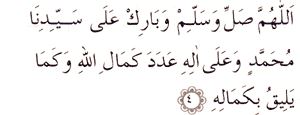 اَللّٰهُمَّ صَلِّ وَسَلِّمْ وَبَارِكْ عَلَى سَيِّدِنَا
مُحَمَّدٍ وَعَلَى اٰلِهِ عَدَدَ كَمَالِ اللهِ وَكَمَا
يَلِيقُ بِكَمَالِهِ ٤